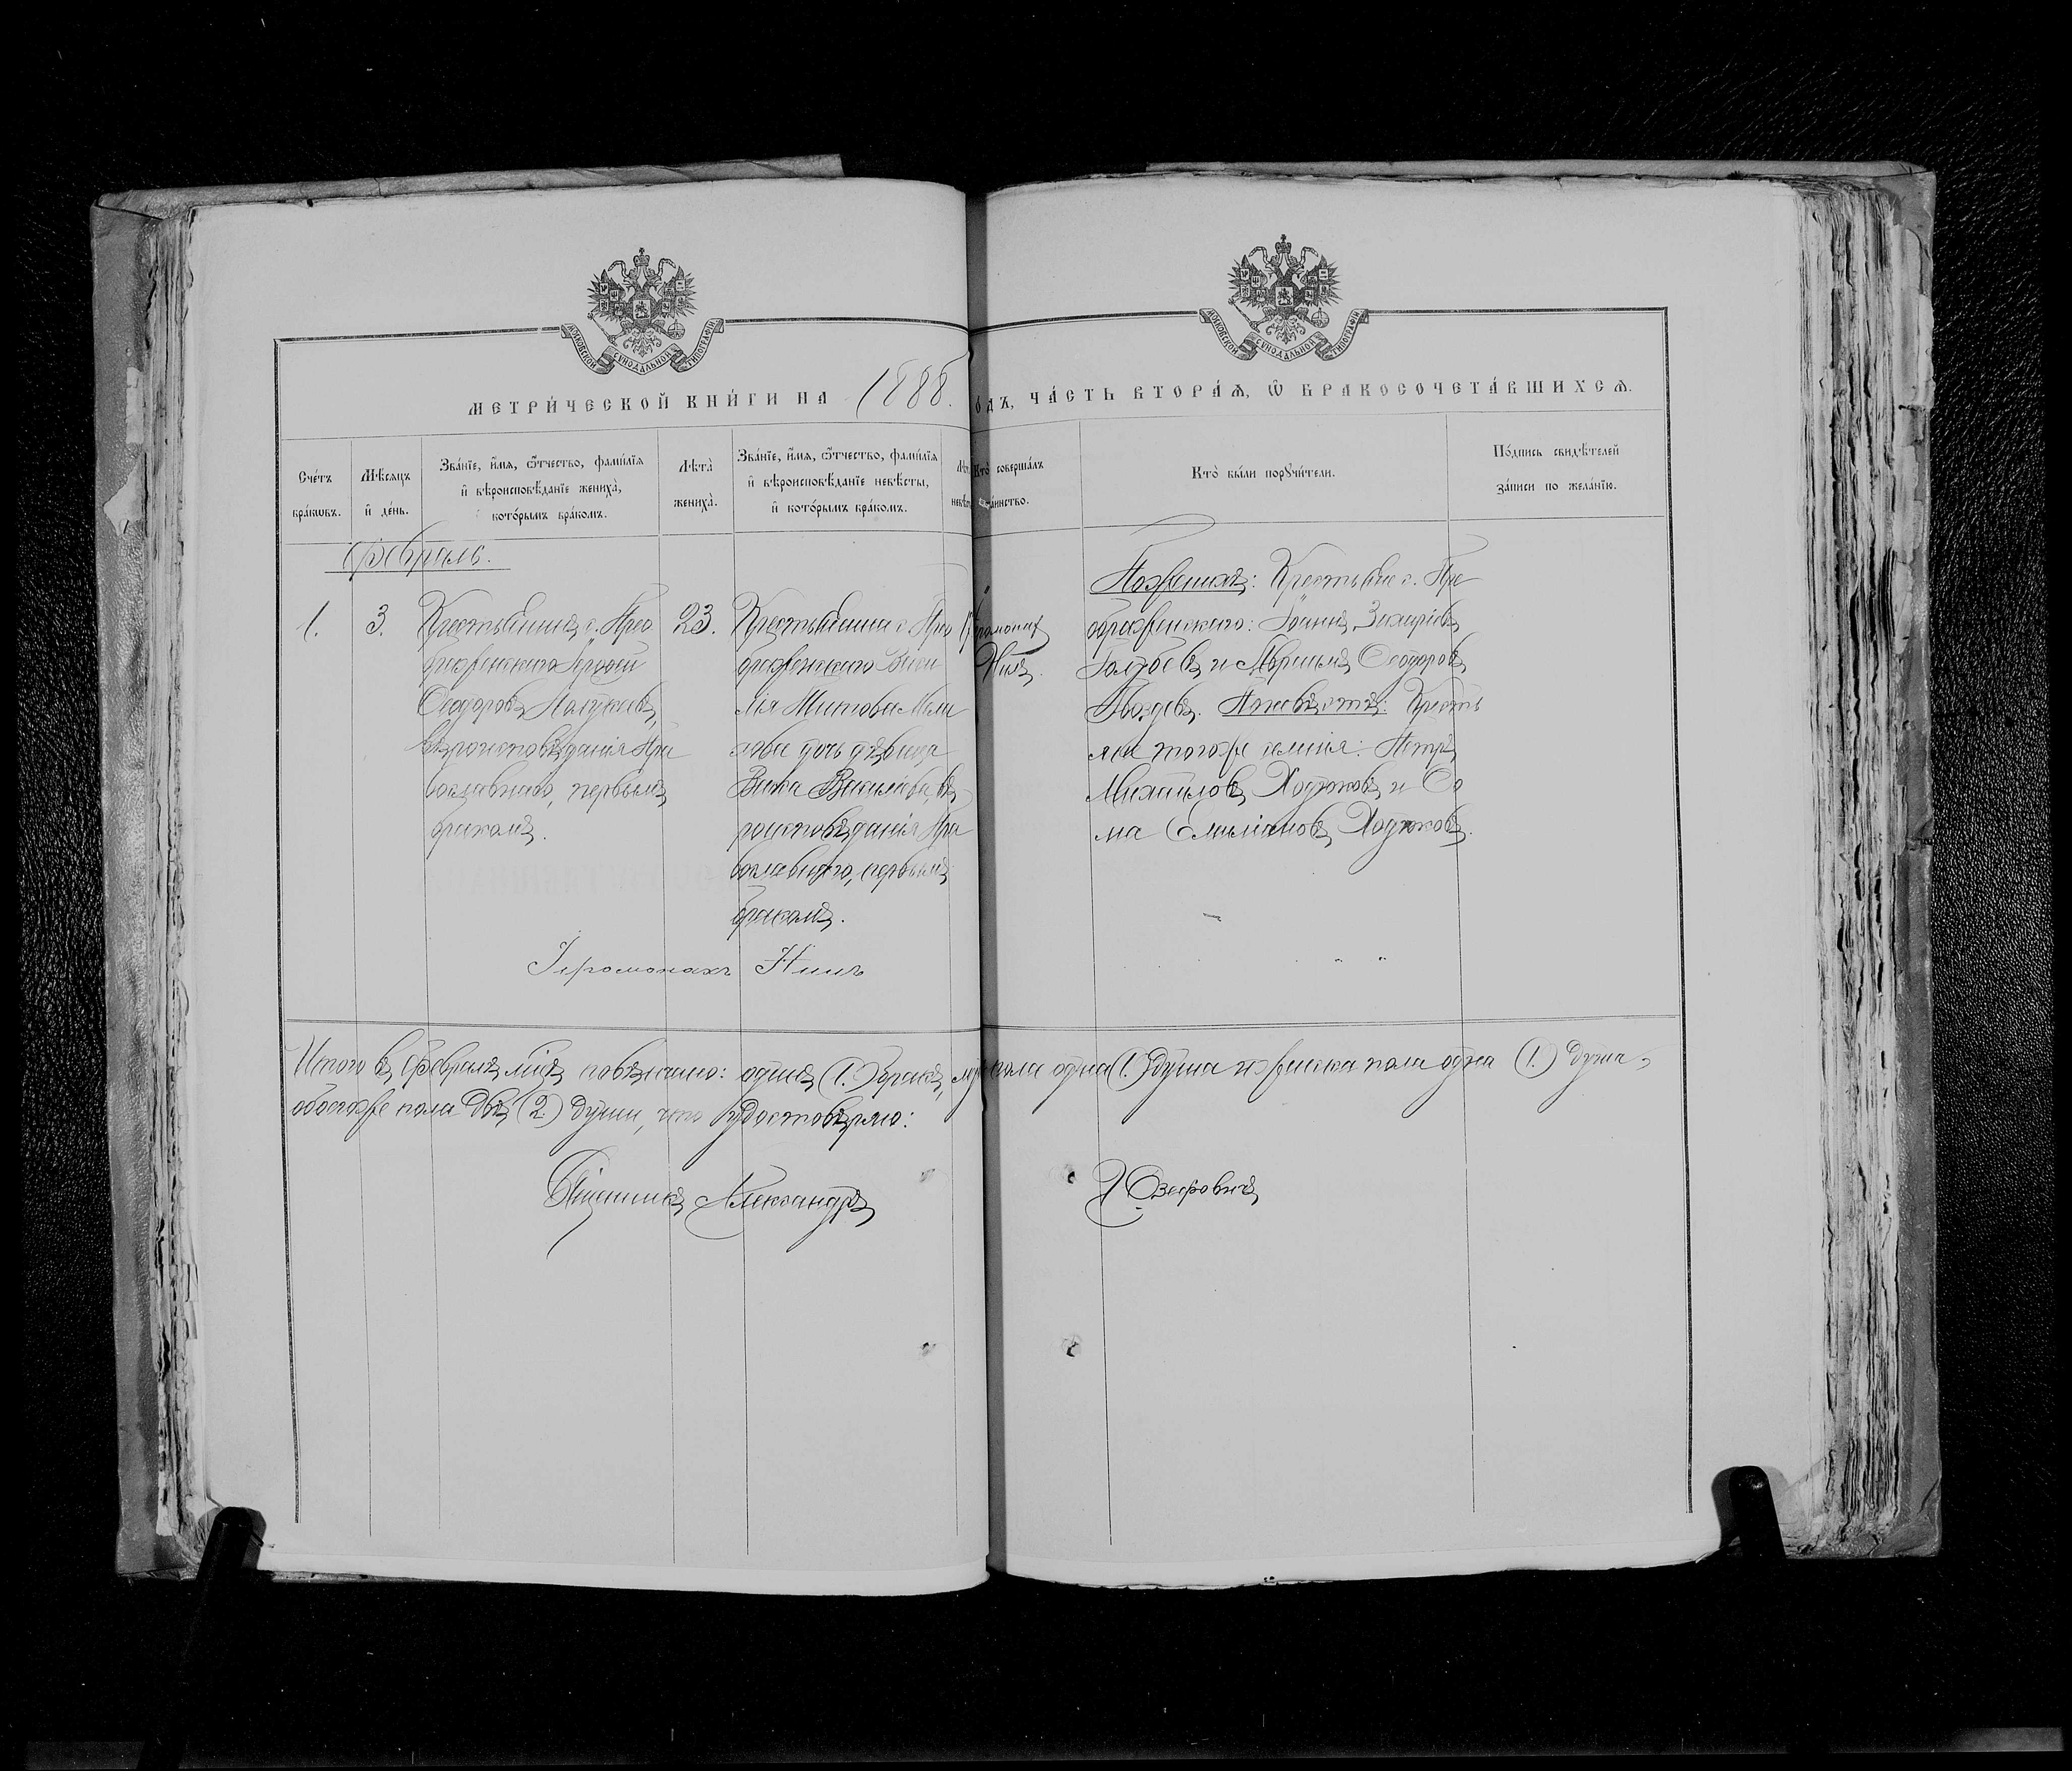 МОСКОВСКОЙ СѴНОДАЛЬНОЙ ТИПОГРАФІИ
МОСКОВСКОЙ СѴНОДАЛЬНОЙ ТИПОГРАФІИ
МЕТРИ́ЧЕСКОЙ КНИ́ГИ НА 1888. о́дъ, ЧА́СТЬ ВТОРА́Ѧ, Ѽ БРАКОСОЧЕТА́ВШИХСѦ.
Сче́тъ бра́кѡвъ.
Мѣ́сяцъ и҆ де́нь.
Зва́нїе, и҆́мя, ѻ҆́тчество, фами́лїя и҆ вѣроисповѣ́данїе жениха̀, и҆ кото́рымъ бра́комъ.
Лѣта̀ жениха̀.
Зва́нїе, и҆́мя, ѻ҆́тчество, фами́лїя и҆ вѣроисповѣ́данїе невѣ́сты, и҆ кото́рымъ бра́комъ.
Кто̀ соверша́лъ
Кто̀ бы́ли порꙋчи́тели.
По́дпись свидѣ́телей за́писи по жела́нїю.
Февраль.
1.
3.
Крестьянинъ с. Прео
браженскаго
Ѳеодоровъ
вѣроисповѣданія Пра
вославнаго, первымъ
бракомъ.
23.
Крестьянина с. Прео
браженскаго Васи
лія Титова
дочь дѣвица
Васильева, вѣ
роисповѣданія Пра
вославнаго, первымъ
бракомъ.
Іеромонах
Нилъ.
По женихѣ: Крестьяне с. Пре
ображенскаго: Іоаннъ Захаріевъ
и Ѳеодоровъ
По невѣстѣ: Кресть
яне того же селенія: Петръ
Михаиловъ Ходюковъ и Ѳо
ма Емиліановъ Ходюковъ.
Іеромонахъ Нилъ
Итого въ Февралѣ м҃цѣ повѣнчано: одинъ (1.) бракъ, муж. пола одна (1.) душа и женска пола одна (1.) душа,
обоего же пола двѣ (2) души, что удостовѣряю:
Священникъ Александръ Озеровъ